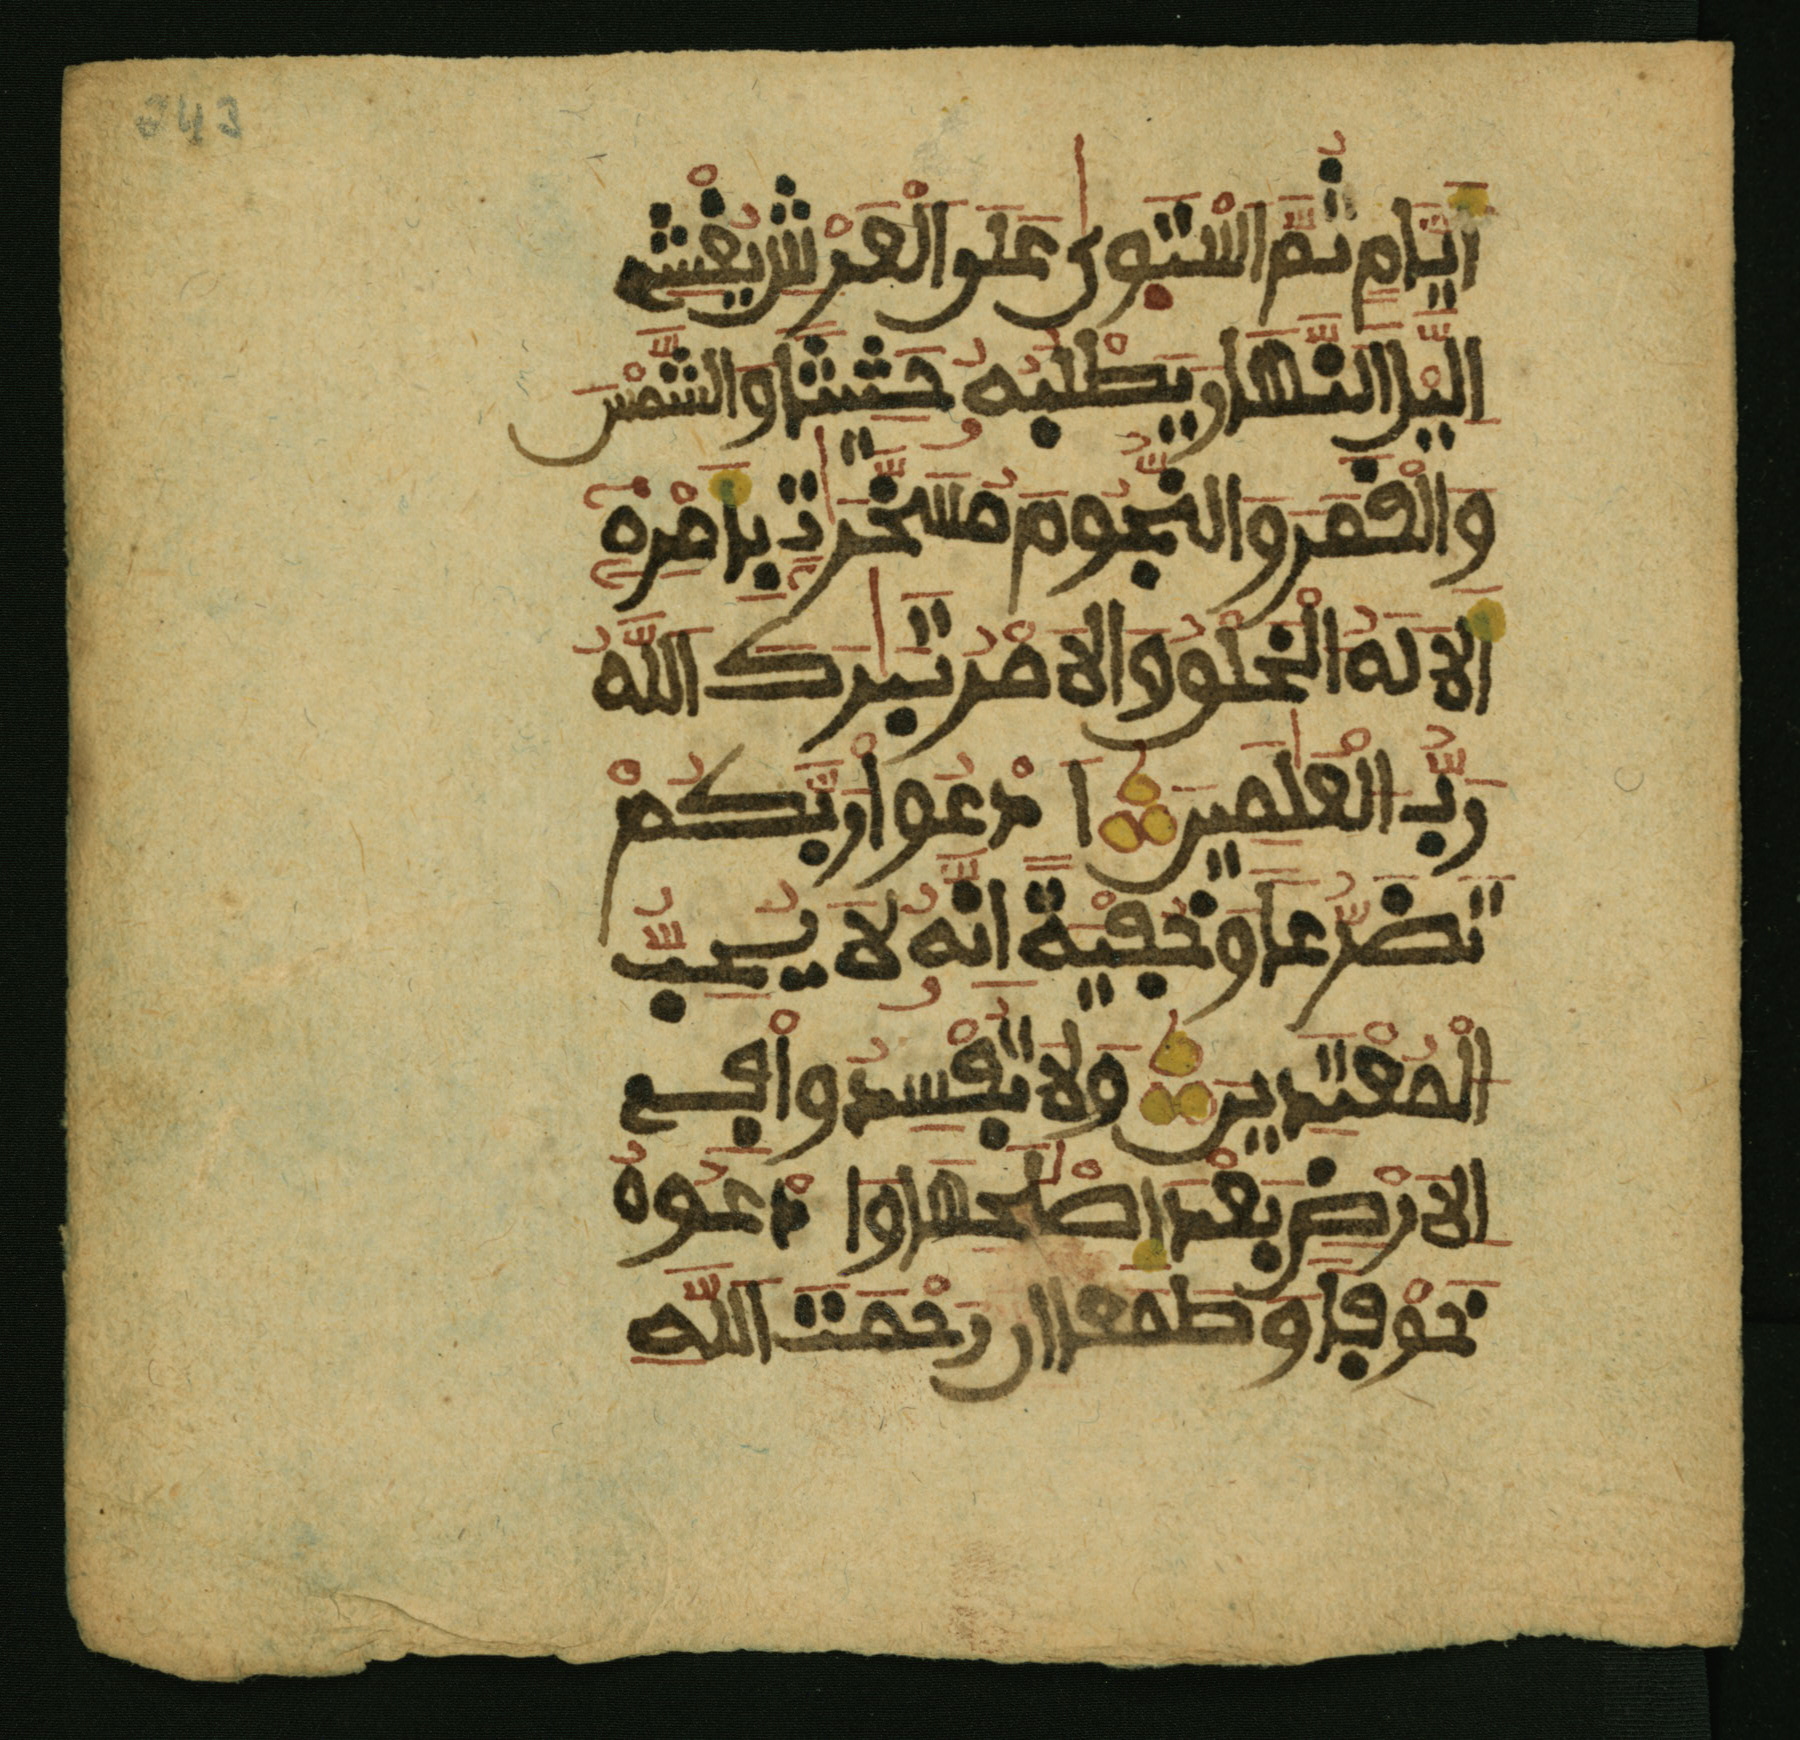 243
أَيَّامٍ ثُمَّ اَسْتَوٜىٰ عَلَى اَلْعَرْشِ يُغْشِے
اِلَيْلَ اَلنَّهَارَ يَطْلُبُهُۥ حَثِيثًا وَالشَّمْسَ
وَالْقَمَرَ وَالنُّجُومَ مُسَخَّرَٰتِۢ بِأَمْرِهِۦٓ
أَلَا لَهُ اُلْخَلْقُ وَالَامْرُ تَبَٰرَكَ اَللَّهُ
رَبُّ اُلْعَٰلَمِينَ اَ دْعُوا۟ رَبَّكُمْ
تَضَرُّعًا وَخُفْيَةً اِنَّهُۥ لَا يُحِبُّ
اُلْمُعْتَدِينَ وَلَا تُفْسِدُوا۟ فِے
اِلَارْضِ بَعْدَ إِصْلَٰحِهَا وَا دْعُوهُ
خَوْفًا وَطَمَعًا اِنَّ رَحْمَتَ اَللَّهِ